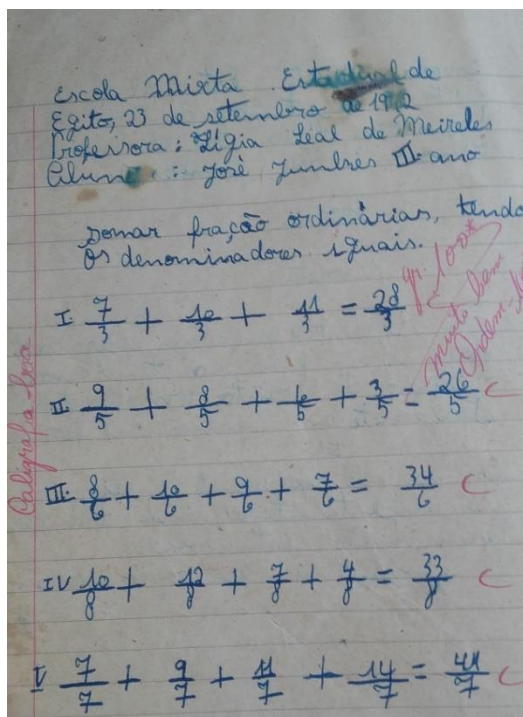 Escola Mixta Estadual de
Egito, 23 de setembro de
Professora: Lígia Leal de Meireles
Alun : José III ano
Somar fração ordinárias, tendo
os denominadores iguais.
gr. 100
muito bem
Ordem
I. 7/3 + 10/3 + 11/3 = 28/3
II. 9/5 + 8/5 + 6/5 + 3/5 = 26/5 C
III. 8/6 + 10/6 + 9/6 + 7/6 = 34/6 C
IV 10/8 + 12/8 + 7/8 + 4/8 = 33/8 C
V 7/7 + 9/7 + 11/7 + 14/7 = 41/7 C
Caligrafia boa